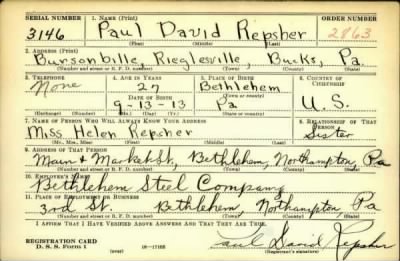 SERIAL NUMBER 1. NAME (Print) ORDER NUMBER
3146 Paul David Repsher 2863
(First) (Middle) (Last)
2. ADDRESS (Print)
Bursonbille, Rieglesville, Bucks, Pa.
(Number and street or R. F. D. number) (Town) (County) (State)
3. TELEPHONE 4. AGE IN YEARS 5. PLACE OF BIRTH 6. COUNTRY OF CITIZENSHIP
None 27 Bethlehem
DATE OF BIRTH (Town or county)
9-13-13 Pa U. S.
(Exchange) (Number) (Mo.) (Day) (Yr.) (State or country)
7. NAME OF PERSON WHO WILL ALWAYS KNOW YOUR ADDRESS 8. RELATIONSHIP OF THAT PERSON
Miss Helen Repsher Sister
(Mr., Mrs., Miss) (First) (Middle) (Last)
9. ADDRESS OF THAT PERSON
Maun & Market St, Bethlehem, Northampton, Pa
(Number and street or R. F. D. number) (Town) (County) (State)
10. EMPLOYER'S NAME
Bethlehem Steel Company
11. PLACE OF EMPLOYMENT OR BUSINESS
3rd St. Bethlehem, Northampton Pa
(Number and street or R. F. D. number) (Town) (County) (State)
I AFFIRM THAT I HAVE VERIFIED ABOVE ANSWERS AND THAT THEY ARE TRUE.
REGISTRATION CARD
D. S. S. Form 1 (over) 16-17105 Paul David Repsher
(Registrant's signature)